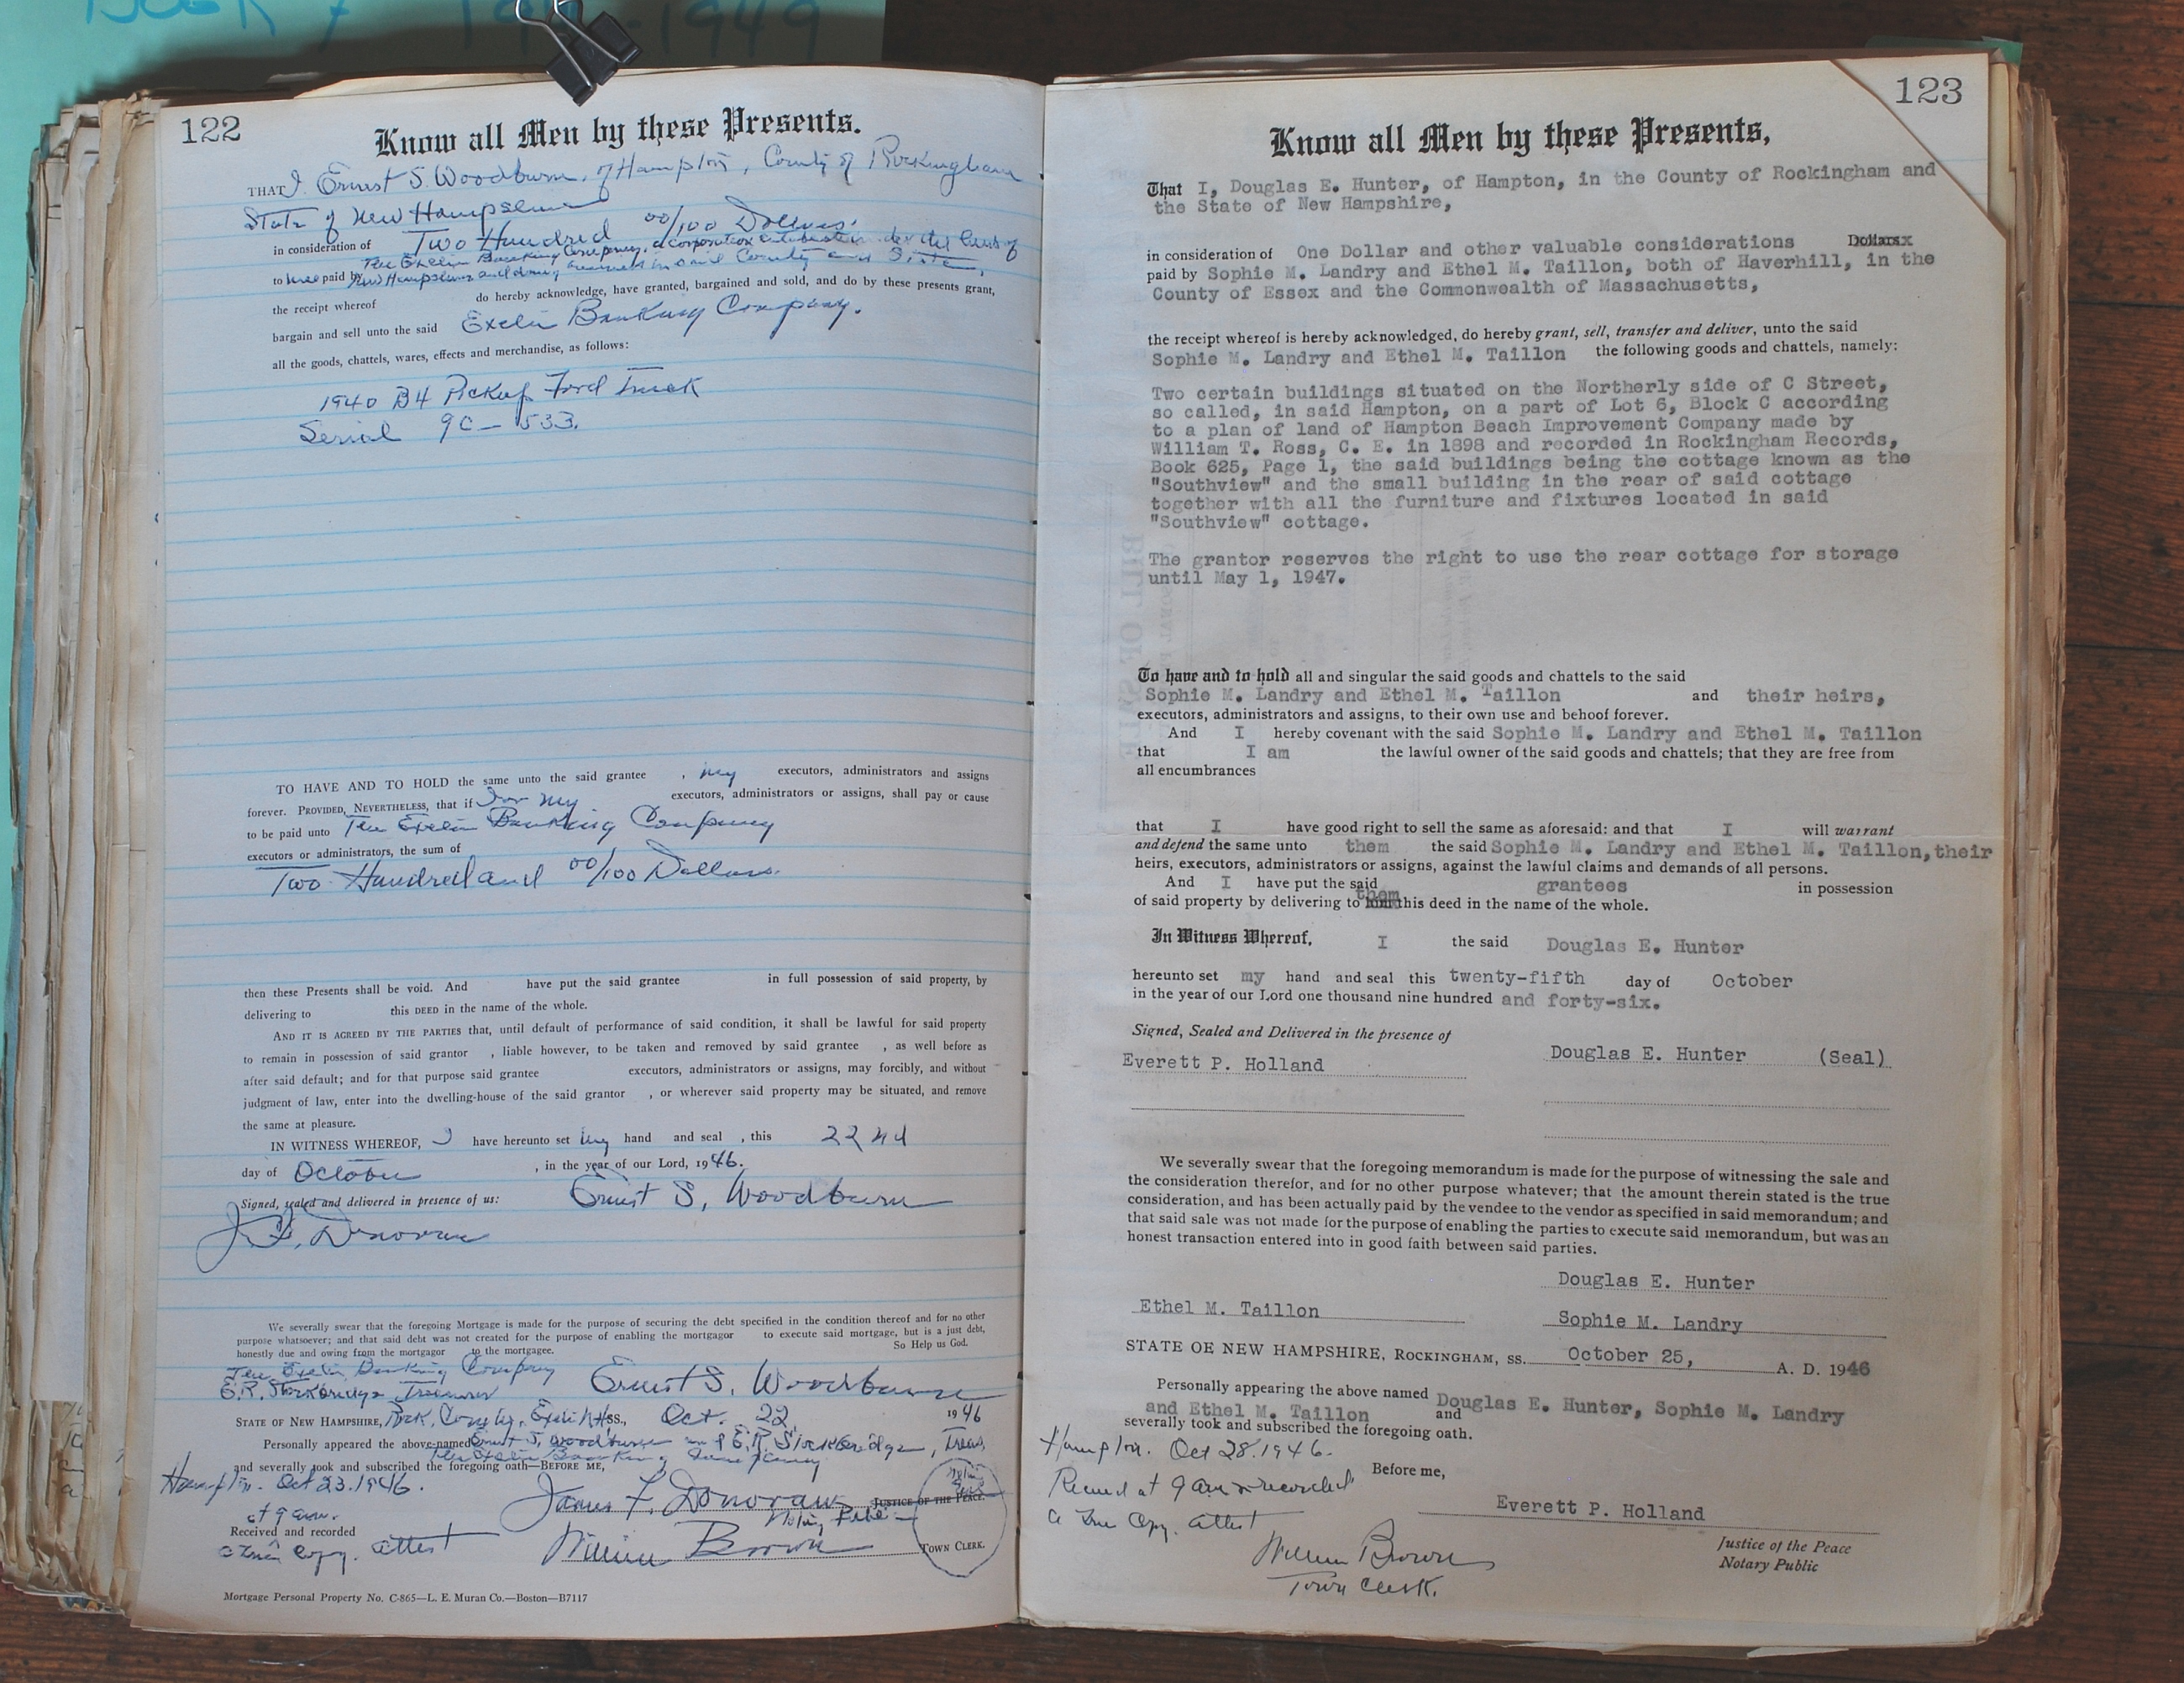 122
Know all Men by these Presents.
THAT I, Ernest S. Woodburn, of Hampton, County of Rockingham
State of New Hampshire
in consideration of Two Hundred 00/100 Dollars
to me paid by The Exeter Banking Company, a corporation under the laws of
New Hampshire and doing business in said County and State,
the receipt whereof do hereby acknowledge, have granted, bargained and sold, and do by these presents grant,
bargain and sell unto the said Exeter Banking Company.
all the goods, chattels, wares, effects and merchandise, as follows:
1940 B4 Pickup Ford Truck
Serial 9C-533.
TO HAVE AND TO HOLD the same unto the said grantee , my executors, administrators and assigns
forever. PROVIDED, NEVERTHELESS, that if I or my executors, administrators or assigns, shall pay or cause
to be paid unto The Exeter Banking Company
executors or administrators, the sum of
Two Hundred and 00/100 Dollars.
then these Presents shall be void. And have put the said grantee in full possession of said property, by
delivering to this DEED in the name of the whole.
AND IT IS AGREED BY THE PARTIES that, until default of performance of said condition, it shall be lawful for said property
to remain in possession of said grantor , liable however, to be taken and removed by said grantee , as well before as
after said default; and for that purpose said grantee executors, administrators or assigns, may forcibly, and without
judgment of law, enter into the dwelling-house of the said grantor , or wherever said property may be situated, and remove
the same at pleasure.
IN WITNESS WHEREOF, I have hereunto set my hand and seal , this 22nd
day of October , in the year of our Lord, 1946.
Signed, sealed and delivered in presence of us: Ernest S. Woodburn
J. F. Donovan
We severally swear that the foregoing Mortgage is made for the purpose of securing the debt specified in the condition thereof and for no other
purpose whatsoever; and that said debt was not created for the purpose of enabling the mortgagor to execute said mortgage, but is a just debt,
honestly due and owing from the mortgagor to the mortgagee. So Help us God.
The Exeter Banking Company
E. R. Stockbridge Treasurer Ernest S. Woodburn
STATE OF NEW HAMPSHIRE, Rock. County, Exeter NH SS., Oct. 22, 1946
Personally appeared the above-named Ernest S. Woodburn and E. R. Stockbridge, Treas.
The Exeter Banking Company
and severally took and subscribed the foregoing oath—BEFORE ME,
Hampton. Oct 23. 1946. James F. Donovan JUSTICE OF THE PEACE.
at 9 am. Notary Public
Received and recorded
a True Copy. Attest William Brown TOWN CLERK.
Mortgage Personal Property No. C-865—L. E. Muran Co.—Boston—B7117
123
Know all Men by these Presents,
That I, Douglas E. Hunter, of Hampton, in the County of Rockingham and
the State of New Hampshire,
in consideration of One Dollar and other valuable considerations Dollarsx
paid by Sophie M. Landry and Ethel M. Taillon, both of Haverhill, in the
County of Essex and the Commonwealth of Massachusetts,
the receipt whereof is hereby acknowledged, do hereby grant, sell, transfer and deliver, unto the said
Sophie M. Landry and Ethel M. Taillon the following goods and chattels, namely:
Two certain buildings situated on the Northerly side of C Street,
so called, in said Hampton, on a part of Lot 6, Block C according
to a plan of land of Hampton Beach Improvement Company made by
William T. Ross, C. E. in 1898 and recorded in Rockingham Records,
Book 625, Page 1, the said buildings being the cottage known as the
"Southview" and the small building in the rear of said cottage
together with all the furniture and fixtures located in said
"Southview" cottage.
The grantor reserves the right to use the rear cottage for storage
until May 1, 1947.
To have and to hold all and singular the said goods and chattels to the said
Sophie M. Landry and Ethel M. Taillon and their heirs,
executors, administrators and assigns, to their own use and behoof forever.
And I hereby covenant with the said Sophie M. Landry and Ethel M. Taillon
that I am the lawful owner of the said goods and chattels; that they are free from
all encumbrances
that I have good right to sell the same as aforesaid: and that I will warrant
and defend the same unto them the said Sophie M. Landry and Ethel M. Taillon, their
heirs, executors, administrators or assigns, against the lawful claims and demands of all persons.
And I have put the said grantees in possession
of said property by delivering to them this deed in the name of the whole.
In Witness Whereof, I the said Douglas E. Hunter
hereunto set my hand and seal this twenty-fifth day of October
in the year of our Lord one thousand nine hundred and forty-six.
Signed, Sealed and Delivered in the presence of
Everett P. Holland Douglas E. Hunter (Seal)
We severally swear that the foregoing memorandum is made for the purpose of witnessing the sale and
the consideration therefor, and for no other purpose whatever; that the amount therein stated is the true
consideration, and has been actually paid by the vendee to the vendor as specified in said memorandum; and
that said sale was not made for the purpose of enabling the parties to execute said memorandum, but was an
honest transaction entered into in good faith between said parties.
Douglas E. Hunter
Ethel M. Taillon Sophie M. Landry
STATE OF NEW HAMPSHIRE, ROCKINGHAM, SS. October 25, A. D. 1946
Personally appearing the above named Douglas E. Hunter, Sophie M. Landry
and Ethel M. Taillon and
severally took and subscribed the foregoing oath.
Hampton. Oct 28. 1946.
Received at 9 am & recorded Before me,
a True Copy. Attest Everett P. Holland
William Brown Justice of the Peace
Town Clerk. Notary Public